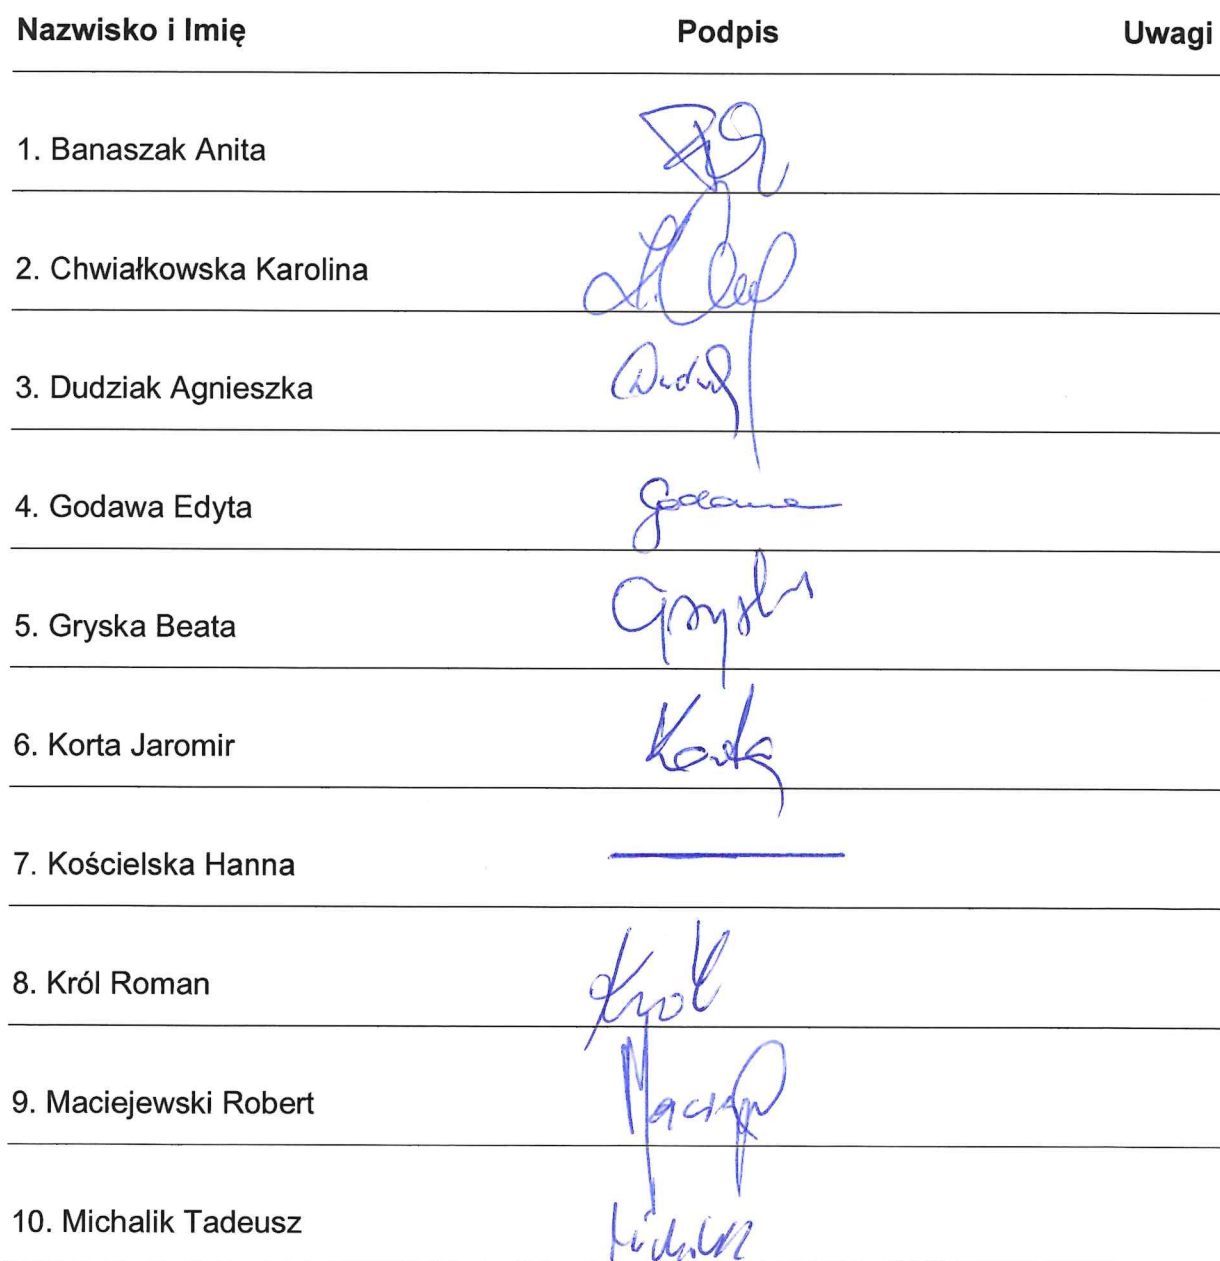 Nazwisko i Imię Podpis Uwagi
1. Banaszak Anita
2. Chwiałkowska Karolina
3. Dudziak Agnieszka
4. Godawa Edyta Godawa
5. Gryska Beata Gryska
6. Korta Jaromir Korta
7. Kościelska Hanna
8. Król Roman Król
9. Maciejewski Robert
10. Michalik Tadeusz Michalik